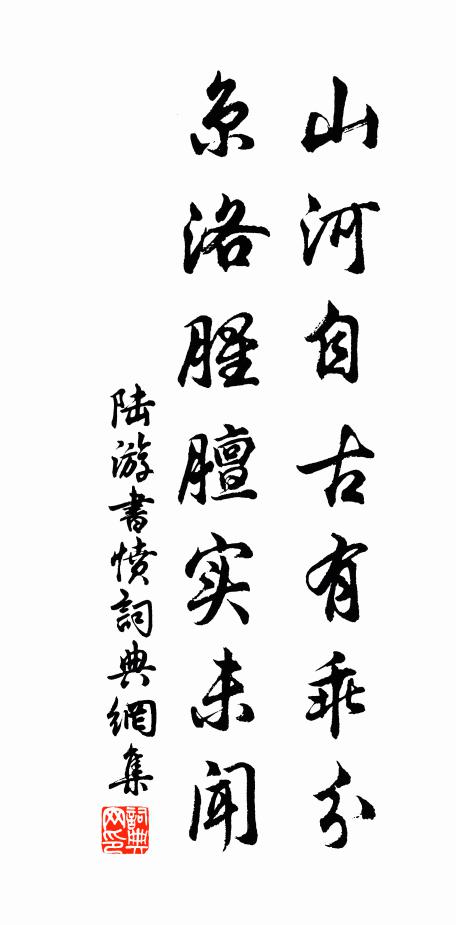 山河自古有乖分
京洛腥膻实未闻
陆游书愤詞典網集
詞典网印